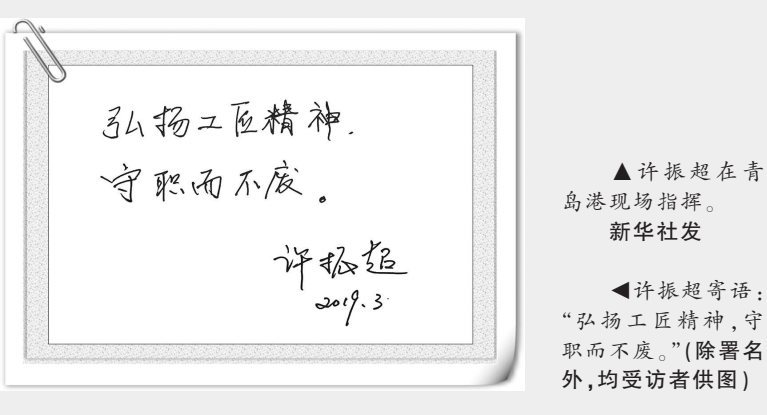 弘扬工匠精神.
守职而不废。
许振超
2019.3
▲许振超在青
岛港现场指挥。
新华社发
◀许振超寄语：
“弘扬工匠精神，守
职而不废。”(除署名
外，均受访者供图)